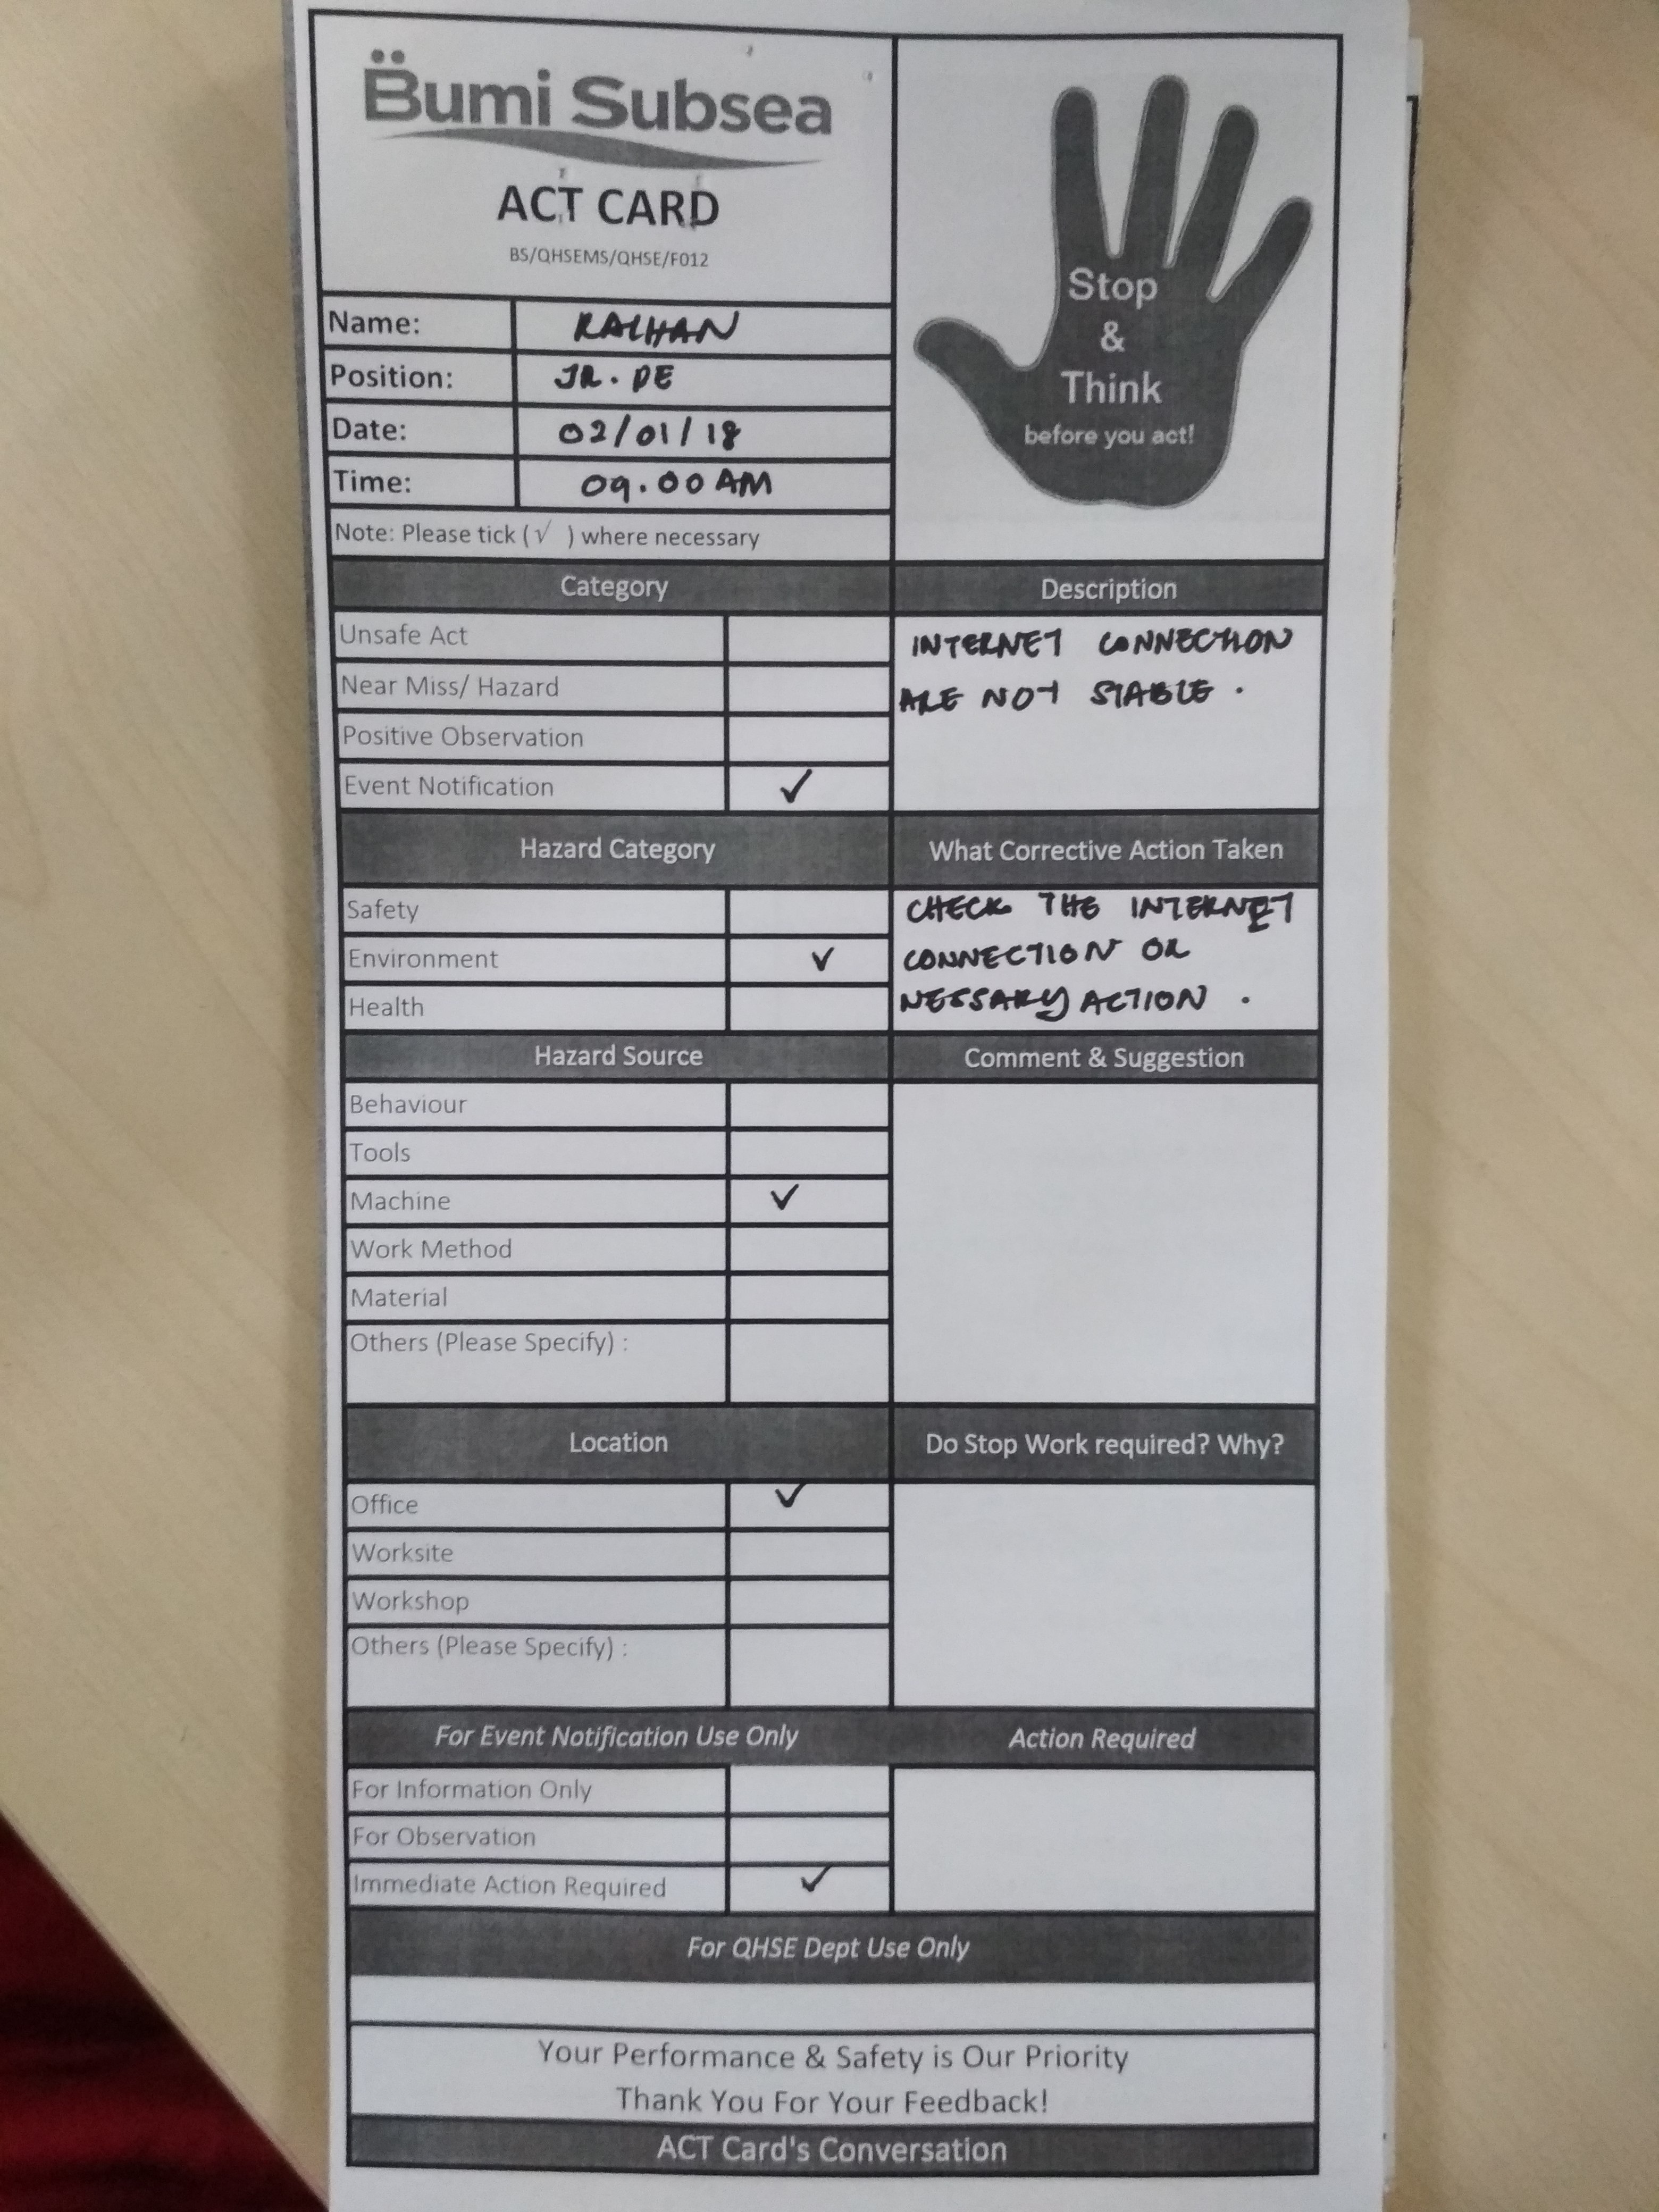 Bumi Subsea
ACT CARD
BS/QHSEMS/QHSE/F012
Stop
&
Think
before you act!
Name: RAIHAN
Position: JR. DE
Date: 02/01/18
Time: 09.00 AM
Note: Please tick (√ ) where necessary
Category
Unsafe Act
Near Miss/ Hazard
Positive Observation
Event Notification ✓
Description
INTERNET CONNECTION
ARE NOT STABLE .
Hazard Category
Safety
Environment ✓
Health
What Corrective Action Taken
CHECK THE INTERNET
CONNECTION OR
NESSARY ACTION .
Hazard Source
Behaviour
Tools
Machine ✓
Work Method
Material
Others (Please Specify) :
Comment & Suggestion
Location
Office ✓
Worksite
Workshop
Others (Please Specify) :
Do Stop Work required? Why?
For Event Notification Use Only
For Information Only
For Observation
Immediate Action Required ✓
Action Required
For QHSE Dept Use Only
Your Performance & Safety is Our Priority
Thank You For Your Feedback!
ACT Card's Conversation